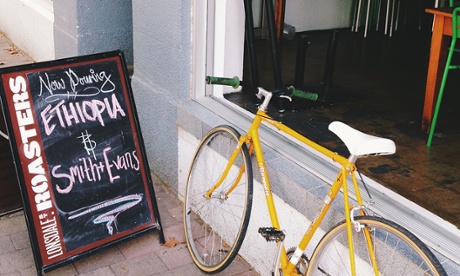 Now Pouring
ETHIOPIA
&
Smith+Evans
LONSDALE ST. ROASTERS